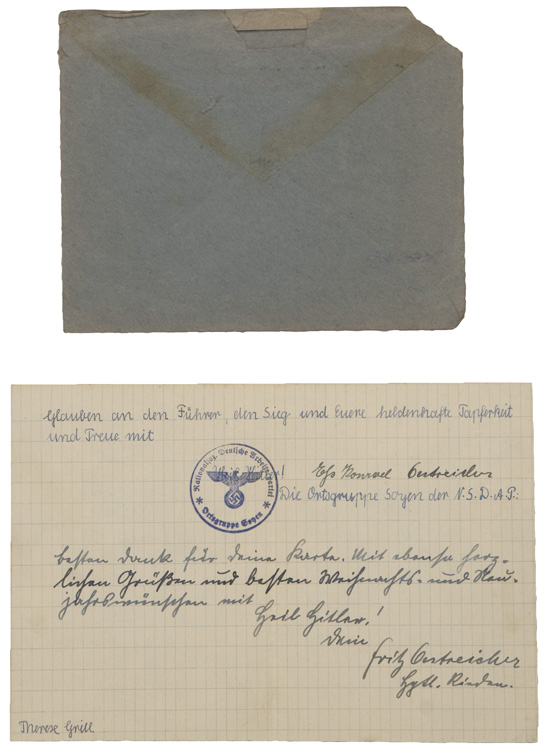 Glauben an den Führer, den Sieg und Euere heldenhafte Tapferkeit
und Treue mit
Heil Hitler!
Oestreicher
Die Ortsgruppe Soyen der N.S.D.A.P.:
Nationalsoz. Deutsche Arbeiterpartei
Ortsgruppe Soyen
besten Dank für Deine Karte. Mit ebenso herz-
lichen Grüßen und besten Weihnachts- und Neu-
jahrswünschen mit
Heil Hitler!
Dein
Fritz Oestreicher
Hptl. Rieden.
Therese Grill